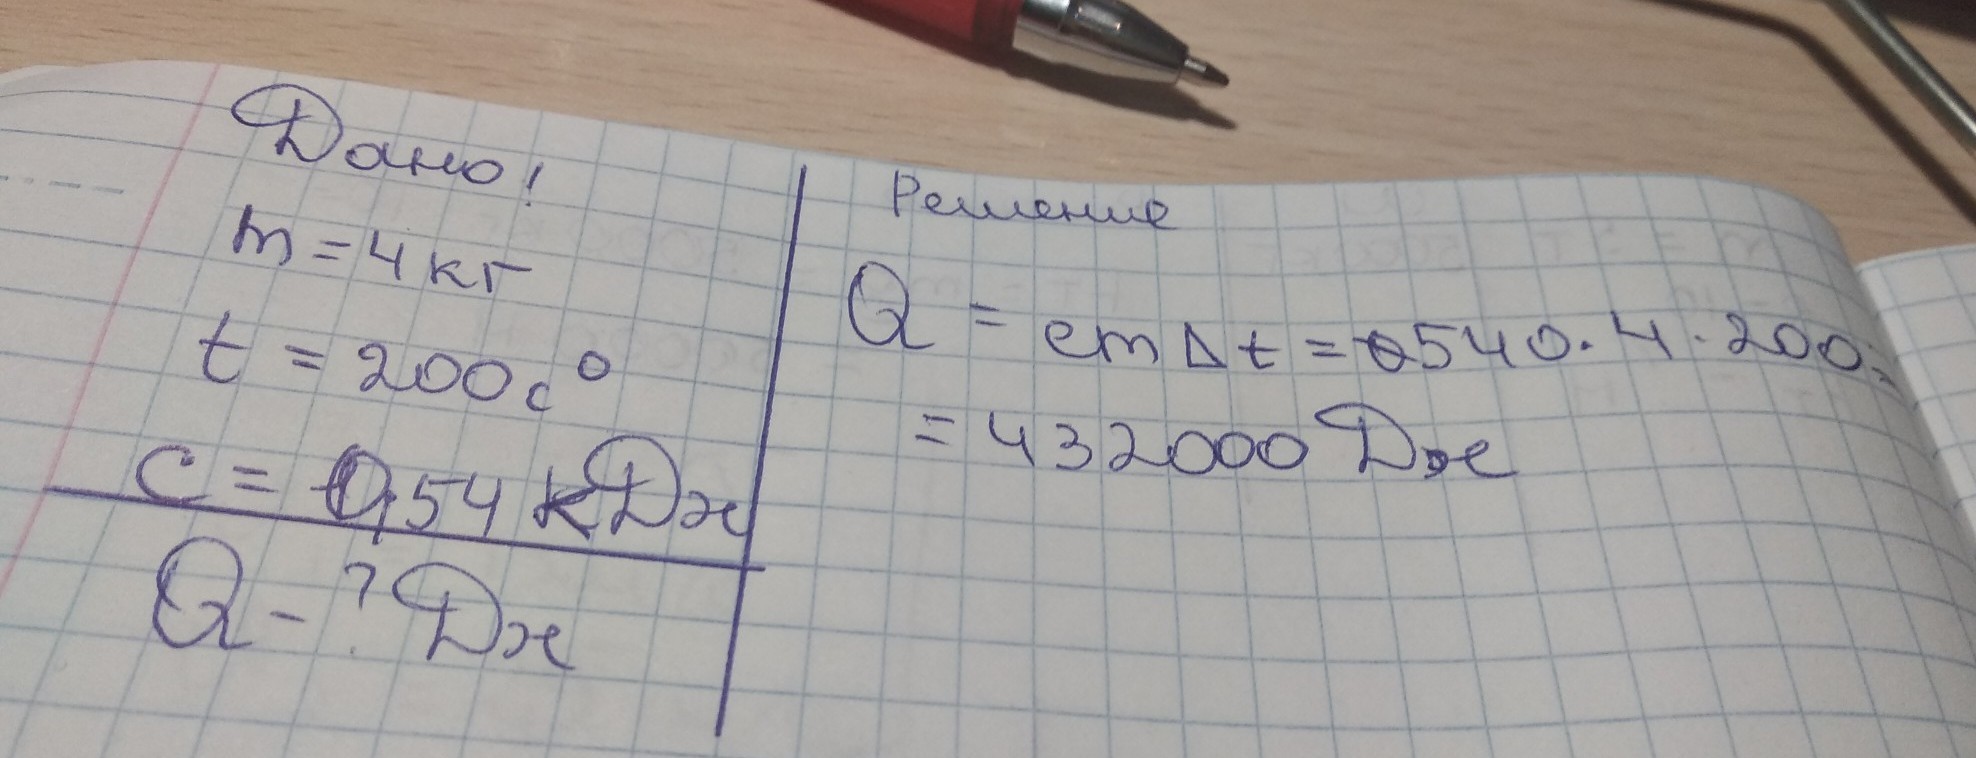 Дано!
m = 4 кг
t = 200 c°
c = 0,54 кДж
Q - ? Дж
Решение
Q = cm Δ t = 540 · 4 · 200 =
= 432000 Дж